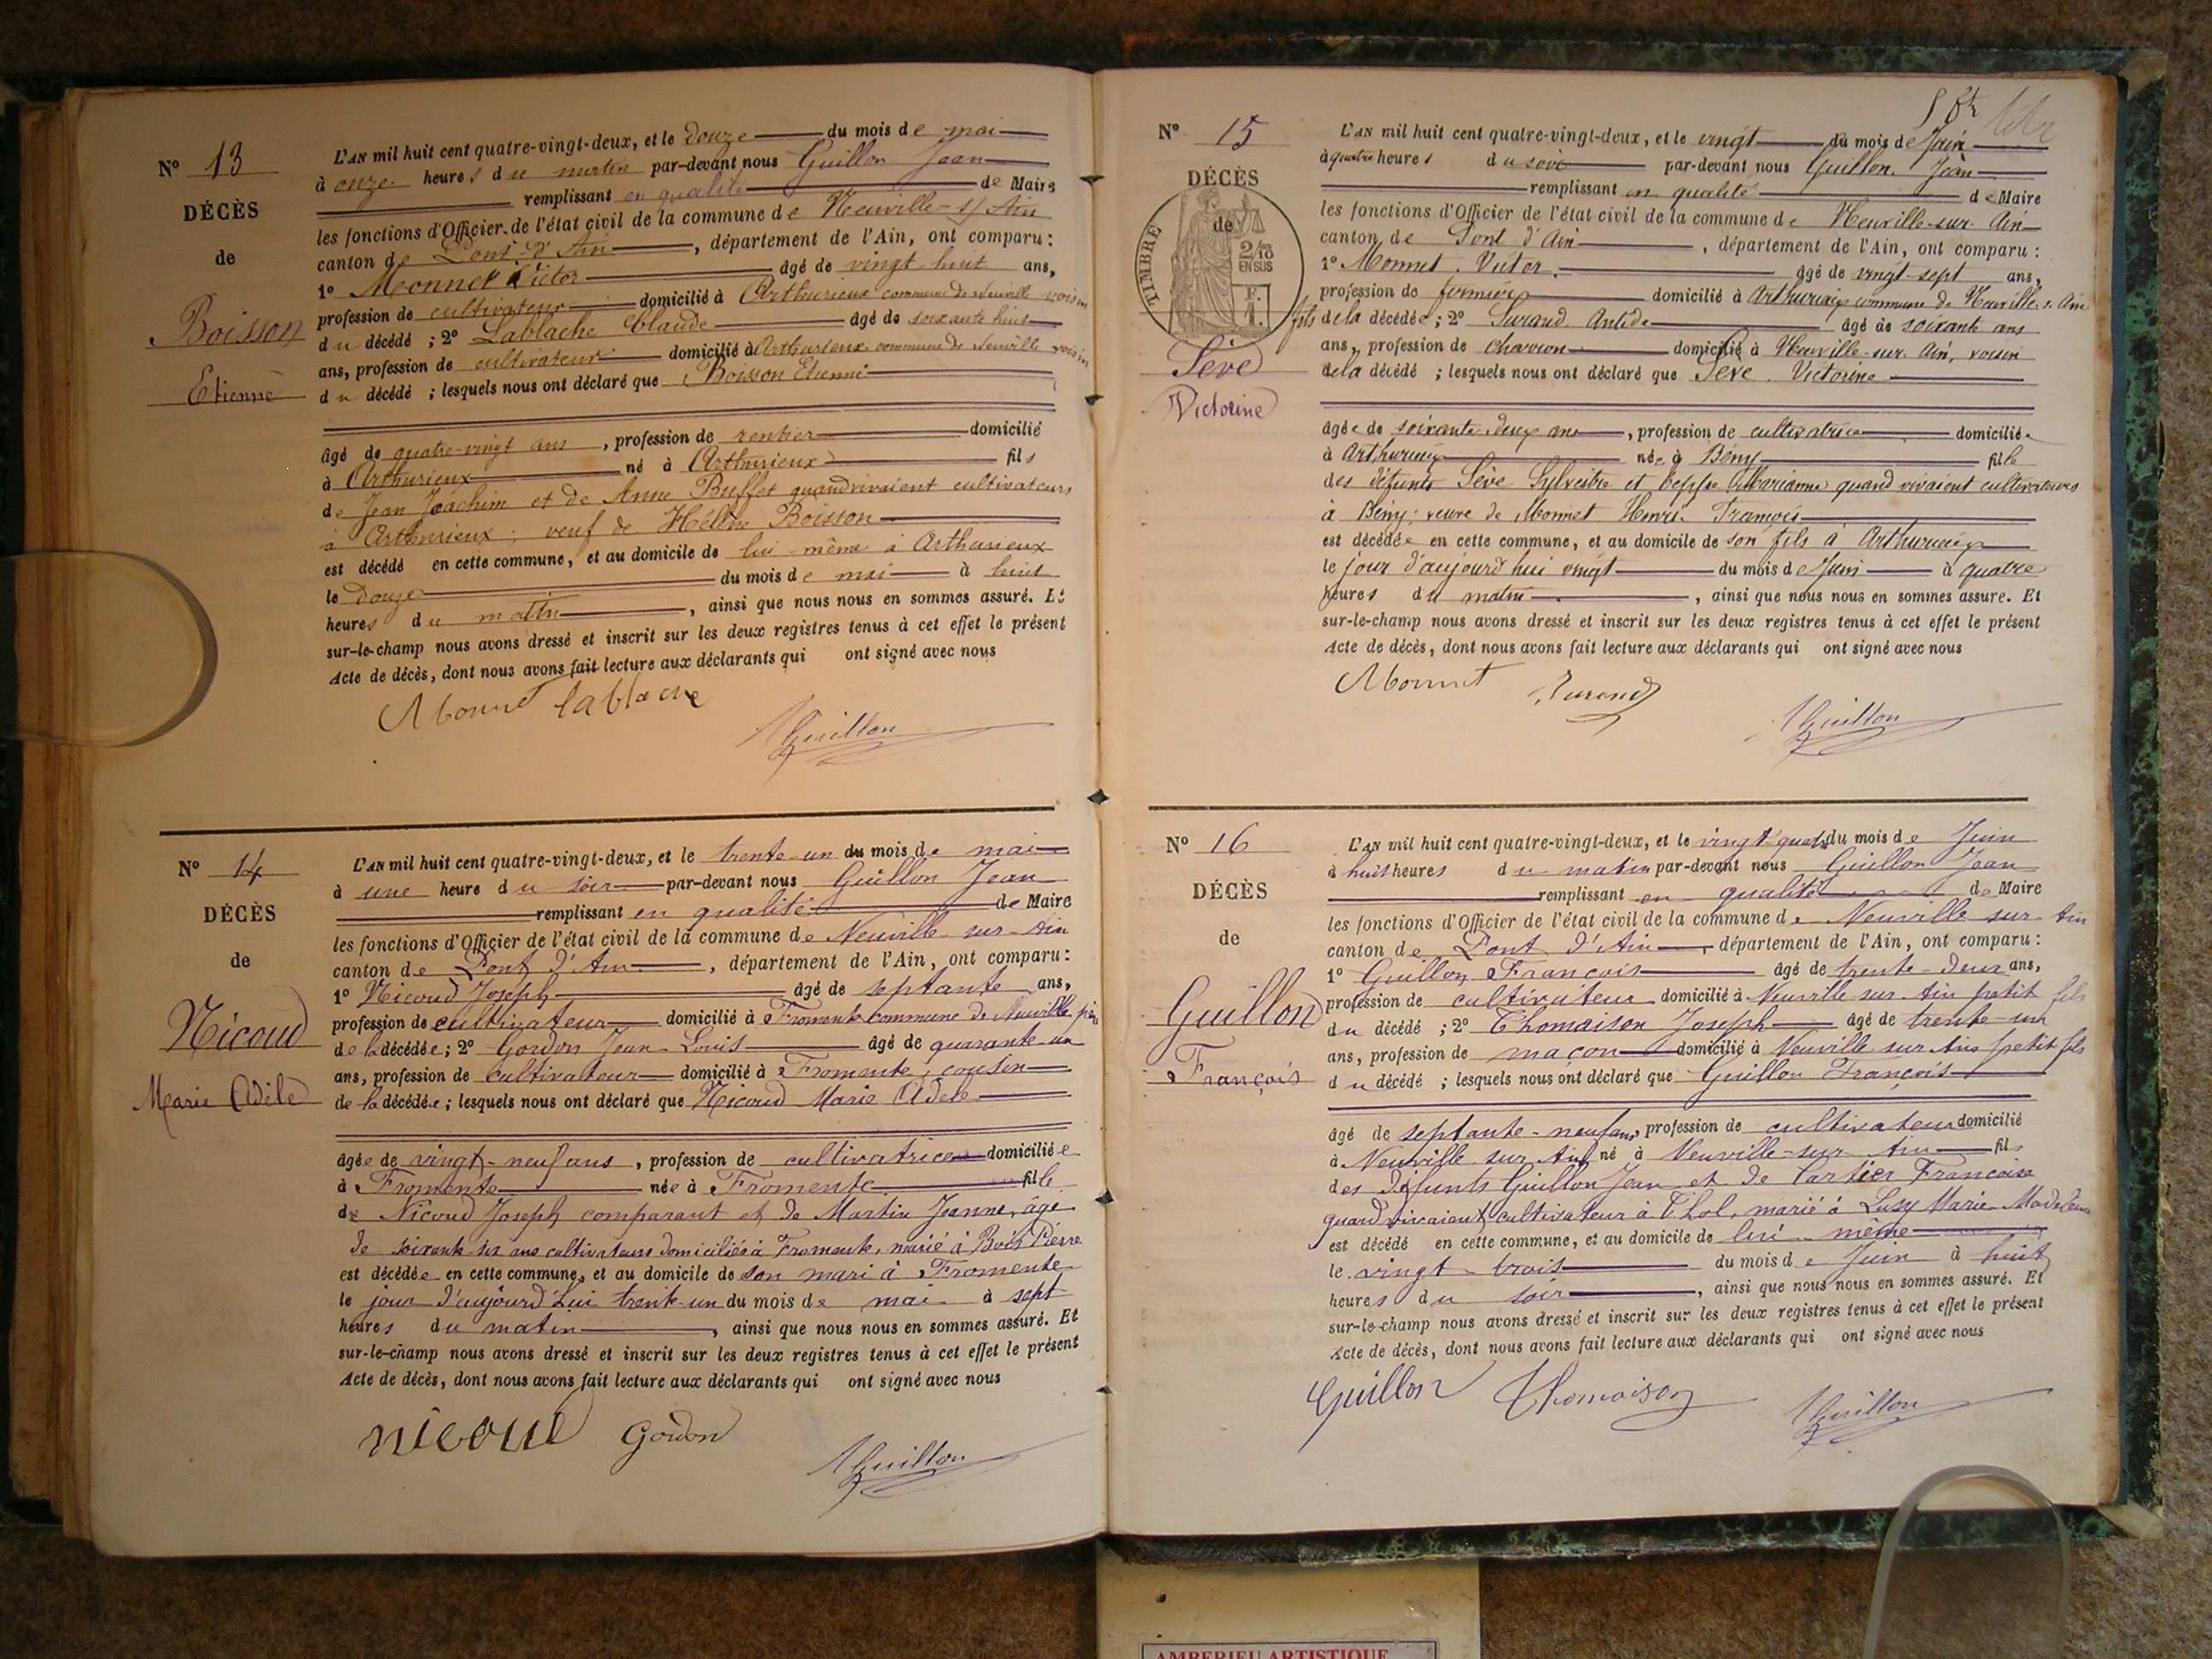 N° 13
DÉCÈS
de
Boisson
Etienne
L'AN mil huit cent quatre-vingt-deux, et le douze du mois de mai
à onze heures du matin par-devant nous Guillon Jean
remplissant en qualité de Maire
les fonctions d'Officier de l'état civil de la commune de Neuville-s/Ain
canton de Pont-d'Ain, département de l'Ain, ont comparu :
1° Monnet Victor âgé de vingt-huit ans,
profession de cultivateur domicilié à Arthurieux commune de Neuville voisin
du décédé ; 2° Lablache Claude âgé de soixante huit
ans, profession de cultivateur domicilié à Arthurieux commune de Neuville voisin
du décédé ; lesquels nous ont déclaré que Boisson Etienne
âgé de quatre-vingt ans, profession de rentier domicilié
à Arthurieux né à Arthurieux fils
de Jean Joachim et de Anne Buffet quand vivaient cultivateurs
à Arthurieux ; veuf de Hélène Boisson
est décédé en cette commune, et au domicile de lui-même à Arthurieux
le douze du mois de mai à huit
heures du matin, ainsi que nous nous en sommes assuré. Et
sur-le-champ nous avons dressé et inscrit sur les deux registres tenus à cet effet le présent
Acte de décès, dont nous avons fait lecture aux déclarants qui ont signé avec nous
Monnet Lablache
Guillon
N° 14
DÉCÈS
de
Nicoud
Marie Adèle
L'AN mil huit cent quatre-vingt-deux, et le trente-un du mois de mai
à une heure du soir par-devant nous Guillon Jean
remplissant en qualité de Maire
les fonctions d'Officier de l'état civil de la commune de Neuville-sur-Ain
canton de Pont d'Ain, département de l'Ain, ont comparu :
1° Nicoud Joseph âgé de septante ans,
profession de cultivateur domicilié à Fromente commune de Neuville père
de la décédée ; 2° Gordon Jean-Louis âgé de quarante-un
ans, profession de cultivateur domicilié à Fromente, cousin
de la décédée ; lesquels nous ont déclaré que Nicoud Marie Adèle
âgée de vingt-neuf ans, profession de cultivatrice domiciliée
à Fromente née à Fromente fille
de Nicoud Joseph comparant et de Martin Jeanne, âgé
de soixante-six ans cultivateurs domiciliés à Fromente, marié à Bois Pierre
est décédée en cette commune, et au domicile de son mari à Fromente
le jour d'aujourd'hui trente-un du mois de mai à sept
heures du matin, ainsi que nous nous en sommes assuré. Et
sur-le-champ nous avons dressé et inscrit sur les deux registres tenus à cet effet le présent
Acte de décès, dont nous avons fait lecture aux déclarants qui ont signé avec nous
nicoud Gordon
Guillon
N° 15
DÉCÈS
de
TIMBRE
2/10
EN SUS
Sève
Victorine
L'AN mil huit cent quatre-vingt-deux, et le vingt du mois de Juin
à quatre heures du soir par-devant nous Guillon Jean
remplissant en qualité de Maire
les fonctions d'Officier de l'état civil de la commune de Neuville-sur-Ain
canton de Pont d'Ain, département de l'Ain, ont comparu :
1° Monnet Victor âgé de vingt-sept ans,
profession de fermier domicilié à Arthurieux commune de Neuville s. Ain
fils de la décédée ; 2° Durand Antide âgé de soixante ans
ans, profession de charron domicilié à Neuville-sur-Ain, voisin
de la décédé ; lesquels nous ont déclaré que Sève Victorine
âgée de soixante-deux ans, profession de cultivatrice domiciliée
à Arthurieux née à Bény fille
des défunts Sève Sylvestre et Marianne quand vivaient cultivateurs
à Bény ; veuve de Monnet Henri François
est décédée en cette commune, et au domicile de son fils à Arthurieux
le jour d'aujourd'hui vingt du mois de Juin à quatre
heures du matin, ainsi que nous nous en sommes assuré. Et
sur-le-champ nous avons dressé et inscrit sur les deux registres tenus à cet effet le présent
Acte de décès, dont nous avons fait lecture aux déclarants qui ont signé avec nous
Monnet Durand
Guillon
N° 16
DÉCÈS
de
Guillon
François
L'AN mil huit cent quatre-vingt-deux, et le vingt quatre du mois de Juin
à huit heures du matin par-devant nous Guillon Jean
remplissant en qualité de Maire
les fonctions d'Officier de l'état civil de la commune de Neuville sur Ain
canton de Pont d'Ain, département de l'Ain, ont comparu :
1° Guillon François âgé de trente-deux ans,
profession de cultivateur domicilié à Neuville sur Ain petit fils
du décédé ; 2° Thomaison Joseph âgé de trente-un
ans, profession de maçon domicilié à Neuville sur Ain petit fils
du décédé ; lesquels nous ont déclaré que Guillon François
âgé de septante-neuf ans, profession de cultivateur domicilié
à Neuville sur Ain né à Neuville-sur Ain fils
des défunts Guillon Jean et de Cartier Françoise
quand vivaient cultivateur à Thol, marié à Luzy Marie-Madeleine
est décédé en cette commune, et au domicile de lui-même
le vingt-trois du mois de Juin à huit
heures du soir, ainsi que nous nous en sommes assuré. Et
sur-le-champ nous avons dressé et inscrit sur les deux registres tenus à cet effet le présent
Acte de décès, dont nous avons fait lecture aux déclarants qui ont signé avec nous
Guillon Thomaison
Guillon
AMBERIEU ARTISTIQUE